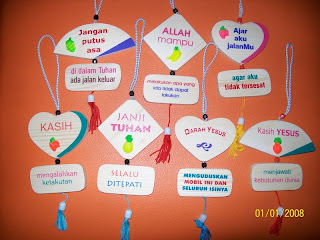 Jangan
putus
asa
di dalam Tuhan
ada jalan keluar
ALLAH
mampu
melakukan apa yang
kita tidak dapat
lakukan
Ajar
aku
jalanMu
agar aku
tidak tersesat
KASIH
mengalahkan
ketakutan
JANJI
TUHAN
SELALU
DITEPATI
DARAH YESUS
MENGUDUSKAN
MOBIL INI DAN
SELURUH ISINYA
Kasih YESUS
menjawab
kebutuhan dunia
01/01/2008